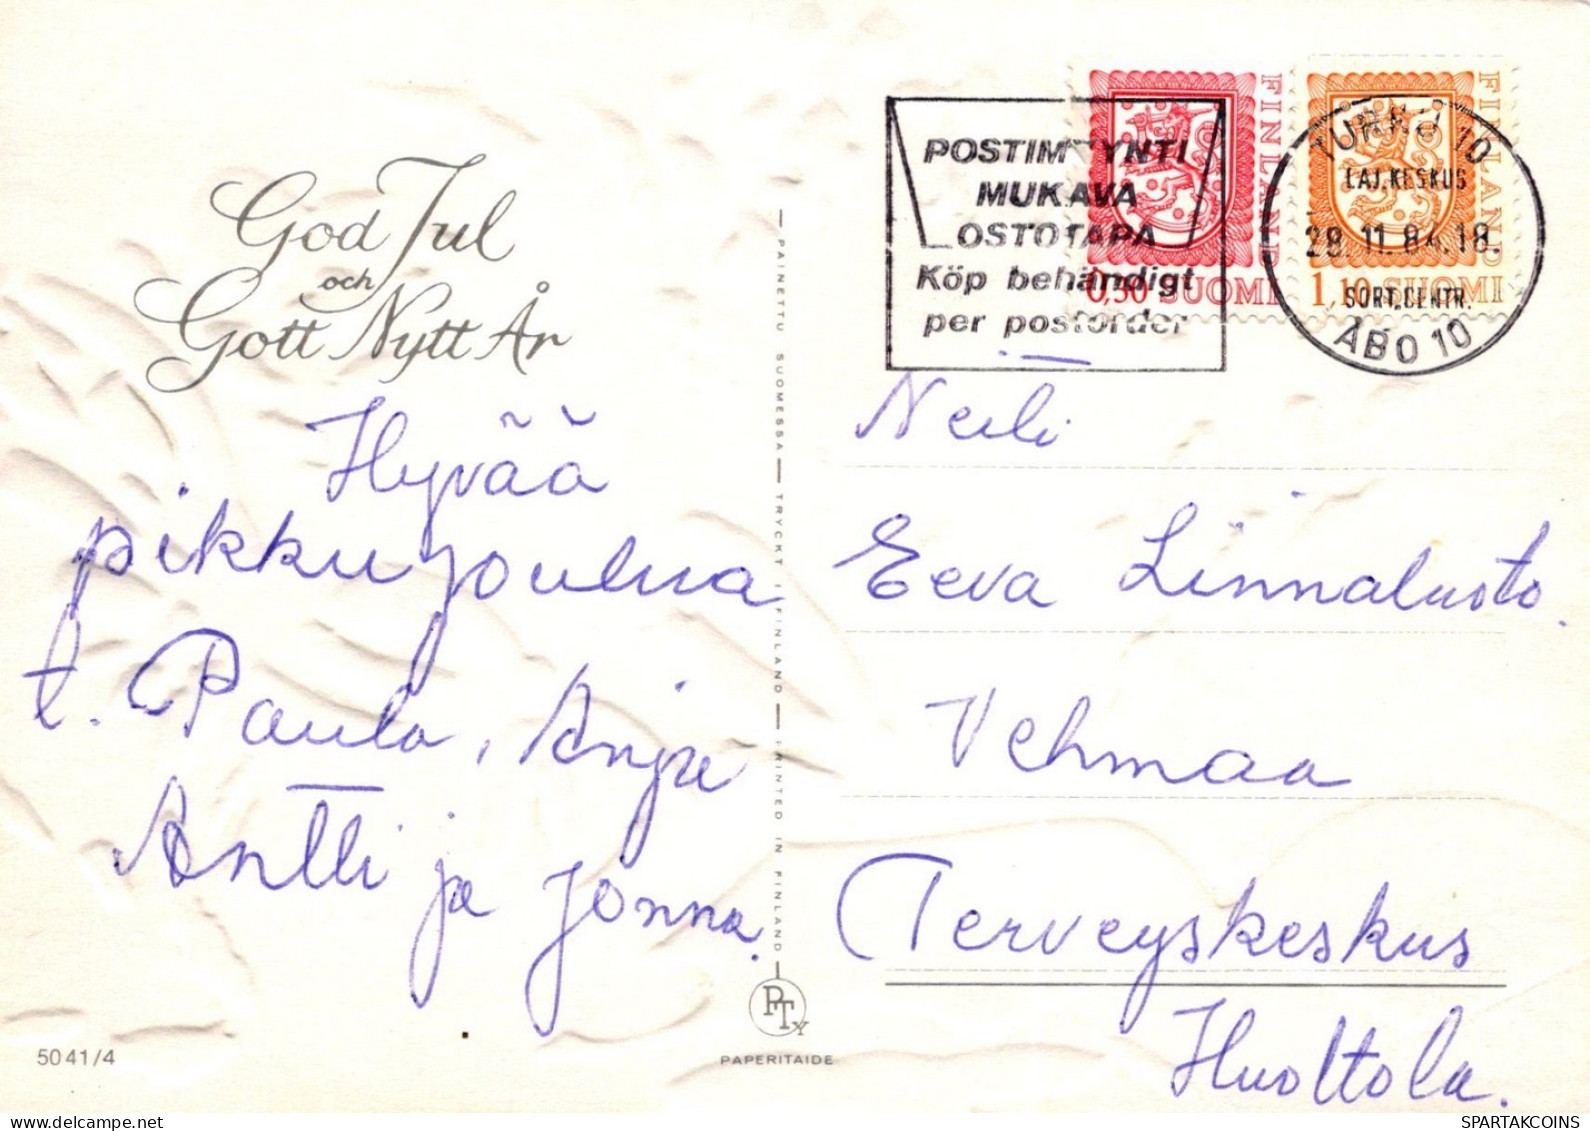 God Jul
och
Gott Nytt År
Hyvää
pikkujoulua
t. Paula, Anja
Antti ja Jonna.
5041/4
PAINETTU SUOMESSA — TRYCKT I FINLAND — PRINTED IN FINLAND
PTy
PAPERITAIDE
POSTIMYYNTI
MUKAVA
OSTOTAPA
Köp behändigt
per postorder
FINLAND
0,50 SUOMI
FINLAND
1,10 SUOMI
TURKU 10
LAJ.KESKUS
28.11.84.18.
SORT.CENTR.
ÅBO 10
Neili
Eeva Linnaluoto.
Vehmaa
Terveyskeskus
Huoltola.
SPARTAKCOINS